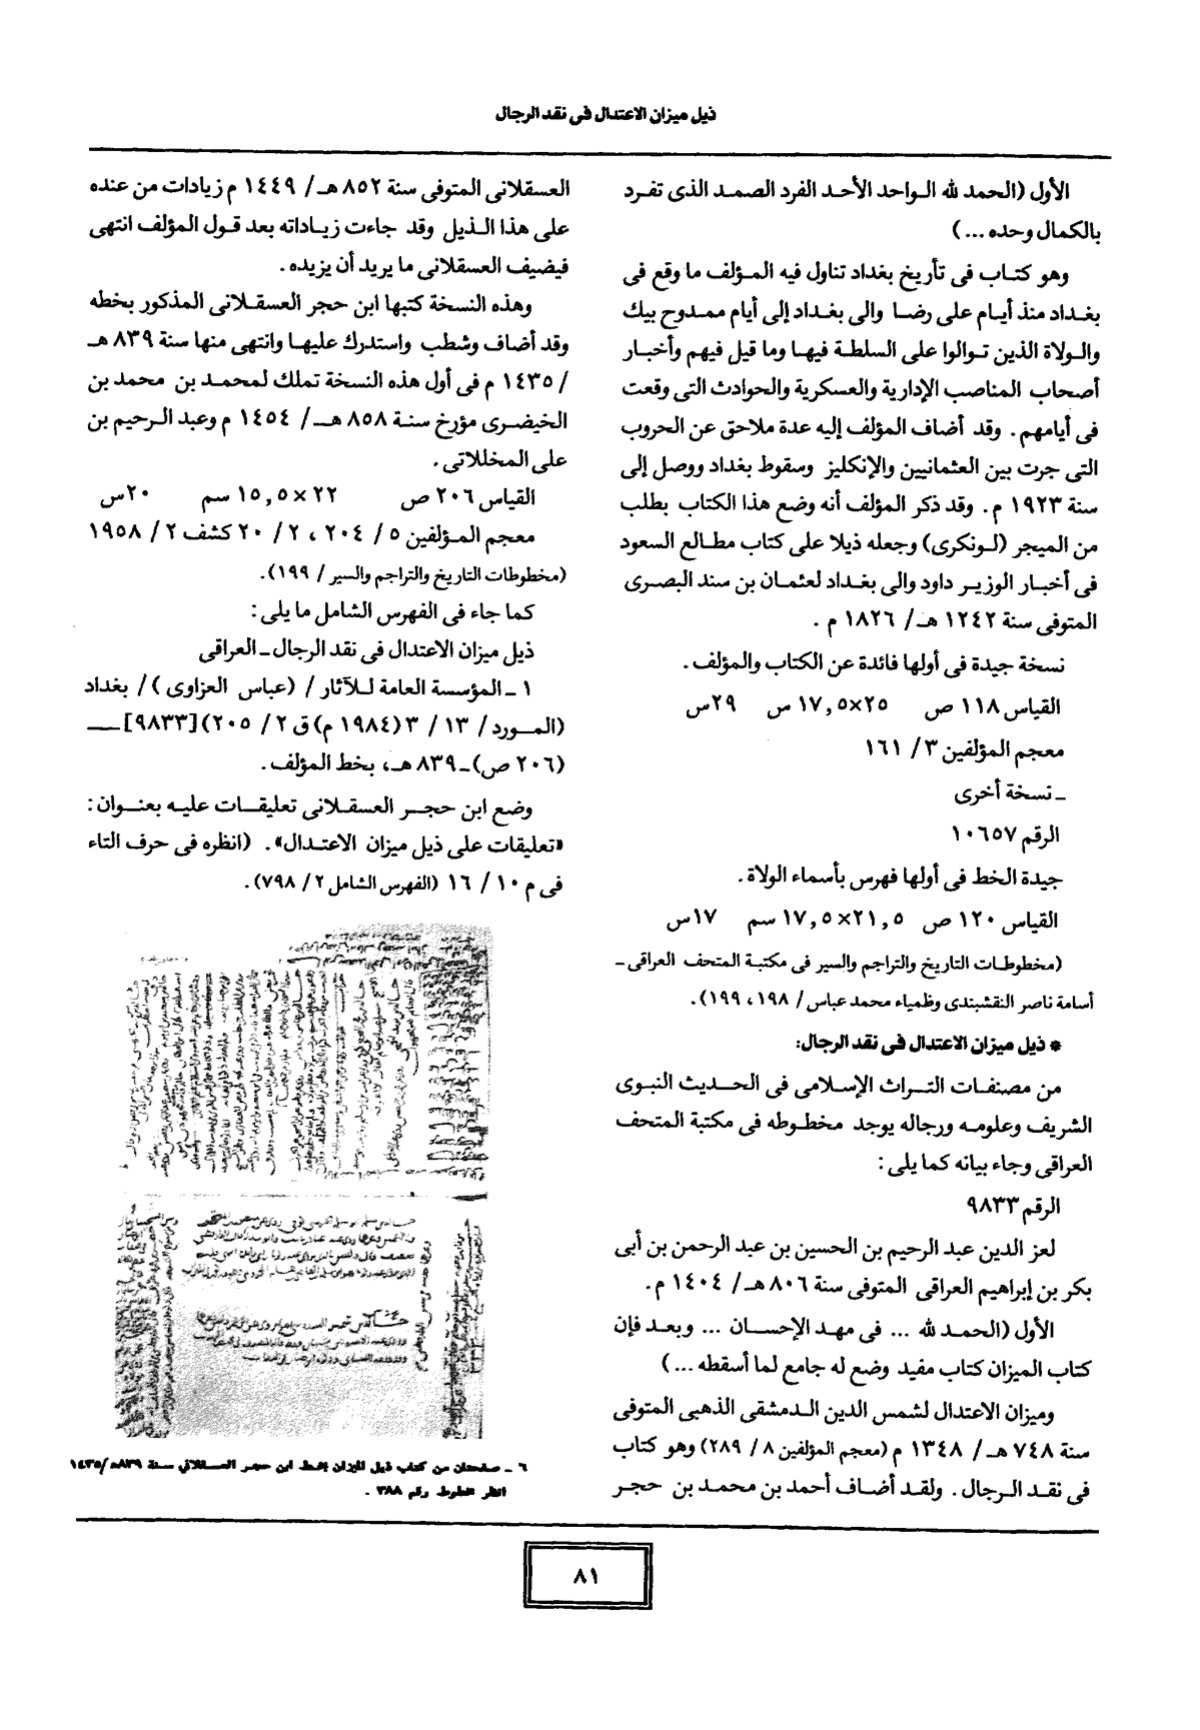 ذيل ميزان الاعتدال فى نقد الرجال
الأول (الحمد لله الـواحد الأحـد الفرد الصمـد الذى تفـرد
بالكمال وحده ... )
وهو كتـاب فى تأريخ بغداد تناول فيه المـؤلف ما وقع فى
بغـداد منذ أيـام على رضـا والى بغـداد إلى أيام ممـدوح بيك
والـولاة الذين تـوالوا على السلطـة فيهـا وما قيل فيهم وأخبـار
أصحاب المناصب الإدارية والعسكرية والحوادث التى وقعت
فى أيامهم . وقد أضاف المؤلف إليه عدة ملاحق عن الحروب
التى جرت بين العثمانيين والإنكليز وسقوط بغداد ووصل إلى
سنة ١٩٢٣ م . وقد ذكر المؤلف أنه وضع هذا الكتاب بطلب
من الميجر (لـونكرى) وجعله ذيلا على كتاب مطـالع السعود
فى أخبـار الوزيـر داود والى بغداد لعثمـان بن سند البصـرى
المتوفى سنة ١٢٤٢ هـ / ١٨٢٦ م .
نسخة جيدة فى أولها فائدة عن الكتاب والمؤلف .
القياس ١١٨ ص ٢٥×١٧,٥ س ٢٩س
معجم المؤلفين ٣ / ١٦١
ـ نسخة أخرى
الرقم ١٠٦٥٧
جيدة الخط فى أولها فهرس بأسماء الولاة .
القياس ١٢٠ ص ٢١,٥×١٧,٥ سم ١٧س
(مخطوطـات التاريخ والتراجم والسير فى مكتبـة المتحف العراقى ـ
أسامة ناصر النقشبندى وظمياء محمد عباس / ١٩٨ ، ١٩٩).
* ذيل ميزان الاعتدال فى نقد الرجال:
من مصنفـات التـراث الإسـلامى فى الحـديث النبـوى
الشريف وعلومـه ورجاله يوجد مخطـوطه فى مكتبة المتحف
العراقى وجاء بيانه كما يلى :
الرقم ٩٨٣٣
لعز الدين عبد الرحيم بن الحسين بن عبد الرحمن بن أبى
بكر بن إبراهيم العراقى المتوفى سنة ٨٠٦ هـ / ١٤٠٤ م .
الأول (الحمـد لله ... فى مهـد الإحسـان ... وبعـد فإن
كتاب الميزان كتاب مفيد وضع له جامع لما أسقطه ... )
وميزان الاعتدال لشمس الدين الـدمشقى الذهبى المتوفى
سنة ٧٤٨ هـ / ١٣٤٨ م (معجم المؤلفين ٨ / ٢٨٩) وهو كتاب
فى نقـد الـرجال . ولقـد أضـاف أحمد بن محمـد بن حجـر
العسقلانى المتوفى سنة ٨٥٢ هـ / ١٤٤٩ م زيادات من عنده
على هذا الـذيل وقد جاءت زيـاداته بعد قـول المؤلف انتهى
فيضيف العسقلانى ما يريد أن يزيده .
وهذه النسخة كتبها ابن حجر العسقـلانى المذكور بخطه
وقد أضاف وشطب واستدرك عليهـا وانتهى منها سنة ٨٣٩ هـ
/ ١٤٣٥ م فى أول هذه النسخة تملك لمحمـد بن محمد بن
الخيضـرى مؤرخ سنـة ٨٥٨ هـ / ١٤٥٤ م وعبد الـرحيم بن
على المخللاتى .
القياس ٢٠٦ ص ٢٢ × ١٥,٥ سم ٢٠س
معجم المـؤلفين ٥ / ٢٠٤ ، ٢ / ٢٠ كشف ٢ / ١٩٥٨
(مخطوطات التاريخ والتراجم والسير / ١٩٩).
كما جاء فى الفهرس الشامل ما يلى :
ذيل ميزان الاعتدال فى نقد الرجال ـ العراقى
١ ـ المؤسسة العامة لـلآثار / (عباس العزاوى ) / بغداد
(المـورد / ١٣ / ٣ (١٩٨٤ م) ق ٢ / ٢٠٥) [٩٨٣٣] ــ
(٢٠٦ ص) ـ ٨٣٩ هـ، بخط المؤلف .
وضع ابن حجـر العسقـلانى تعليقـات عليـه بعنـوان :
«تعليقات على ذيل ميزان الاعتـدال» . (انظره فى حرف التاء
فى م ١٠ / ١٦ (الفهرس الشامل ٢ / ٧٩٨) .
٦ ـ صفحتان من كتاب ذيل الميزان بخط ابن حجر العسقلاني سنة ٨٣٩هـ/١٤٣٥
انظر المخطوط رقم ٣٨٨ .
٨١